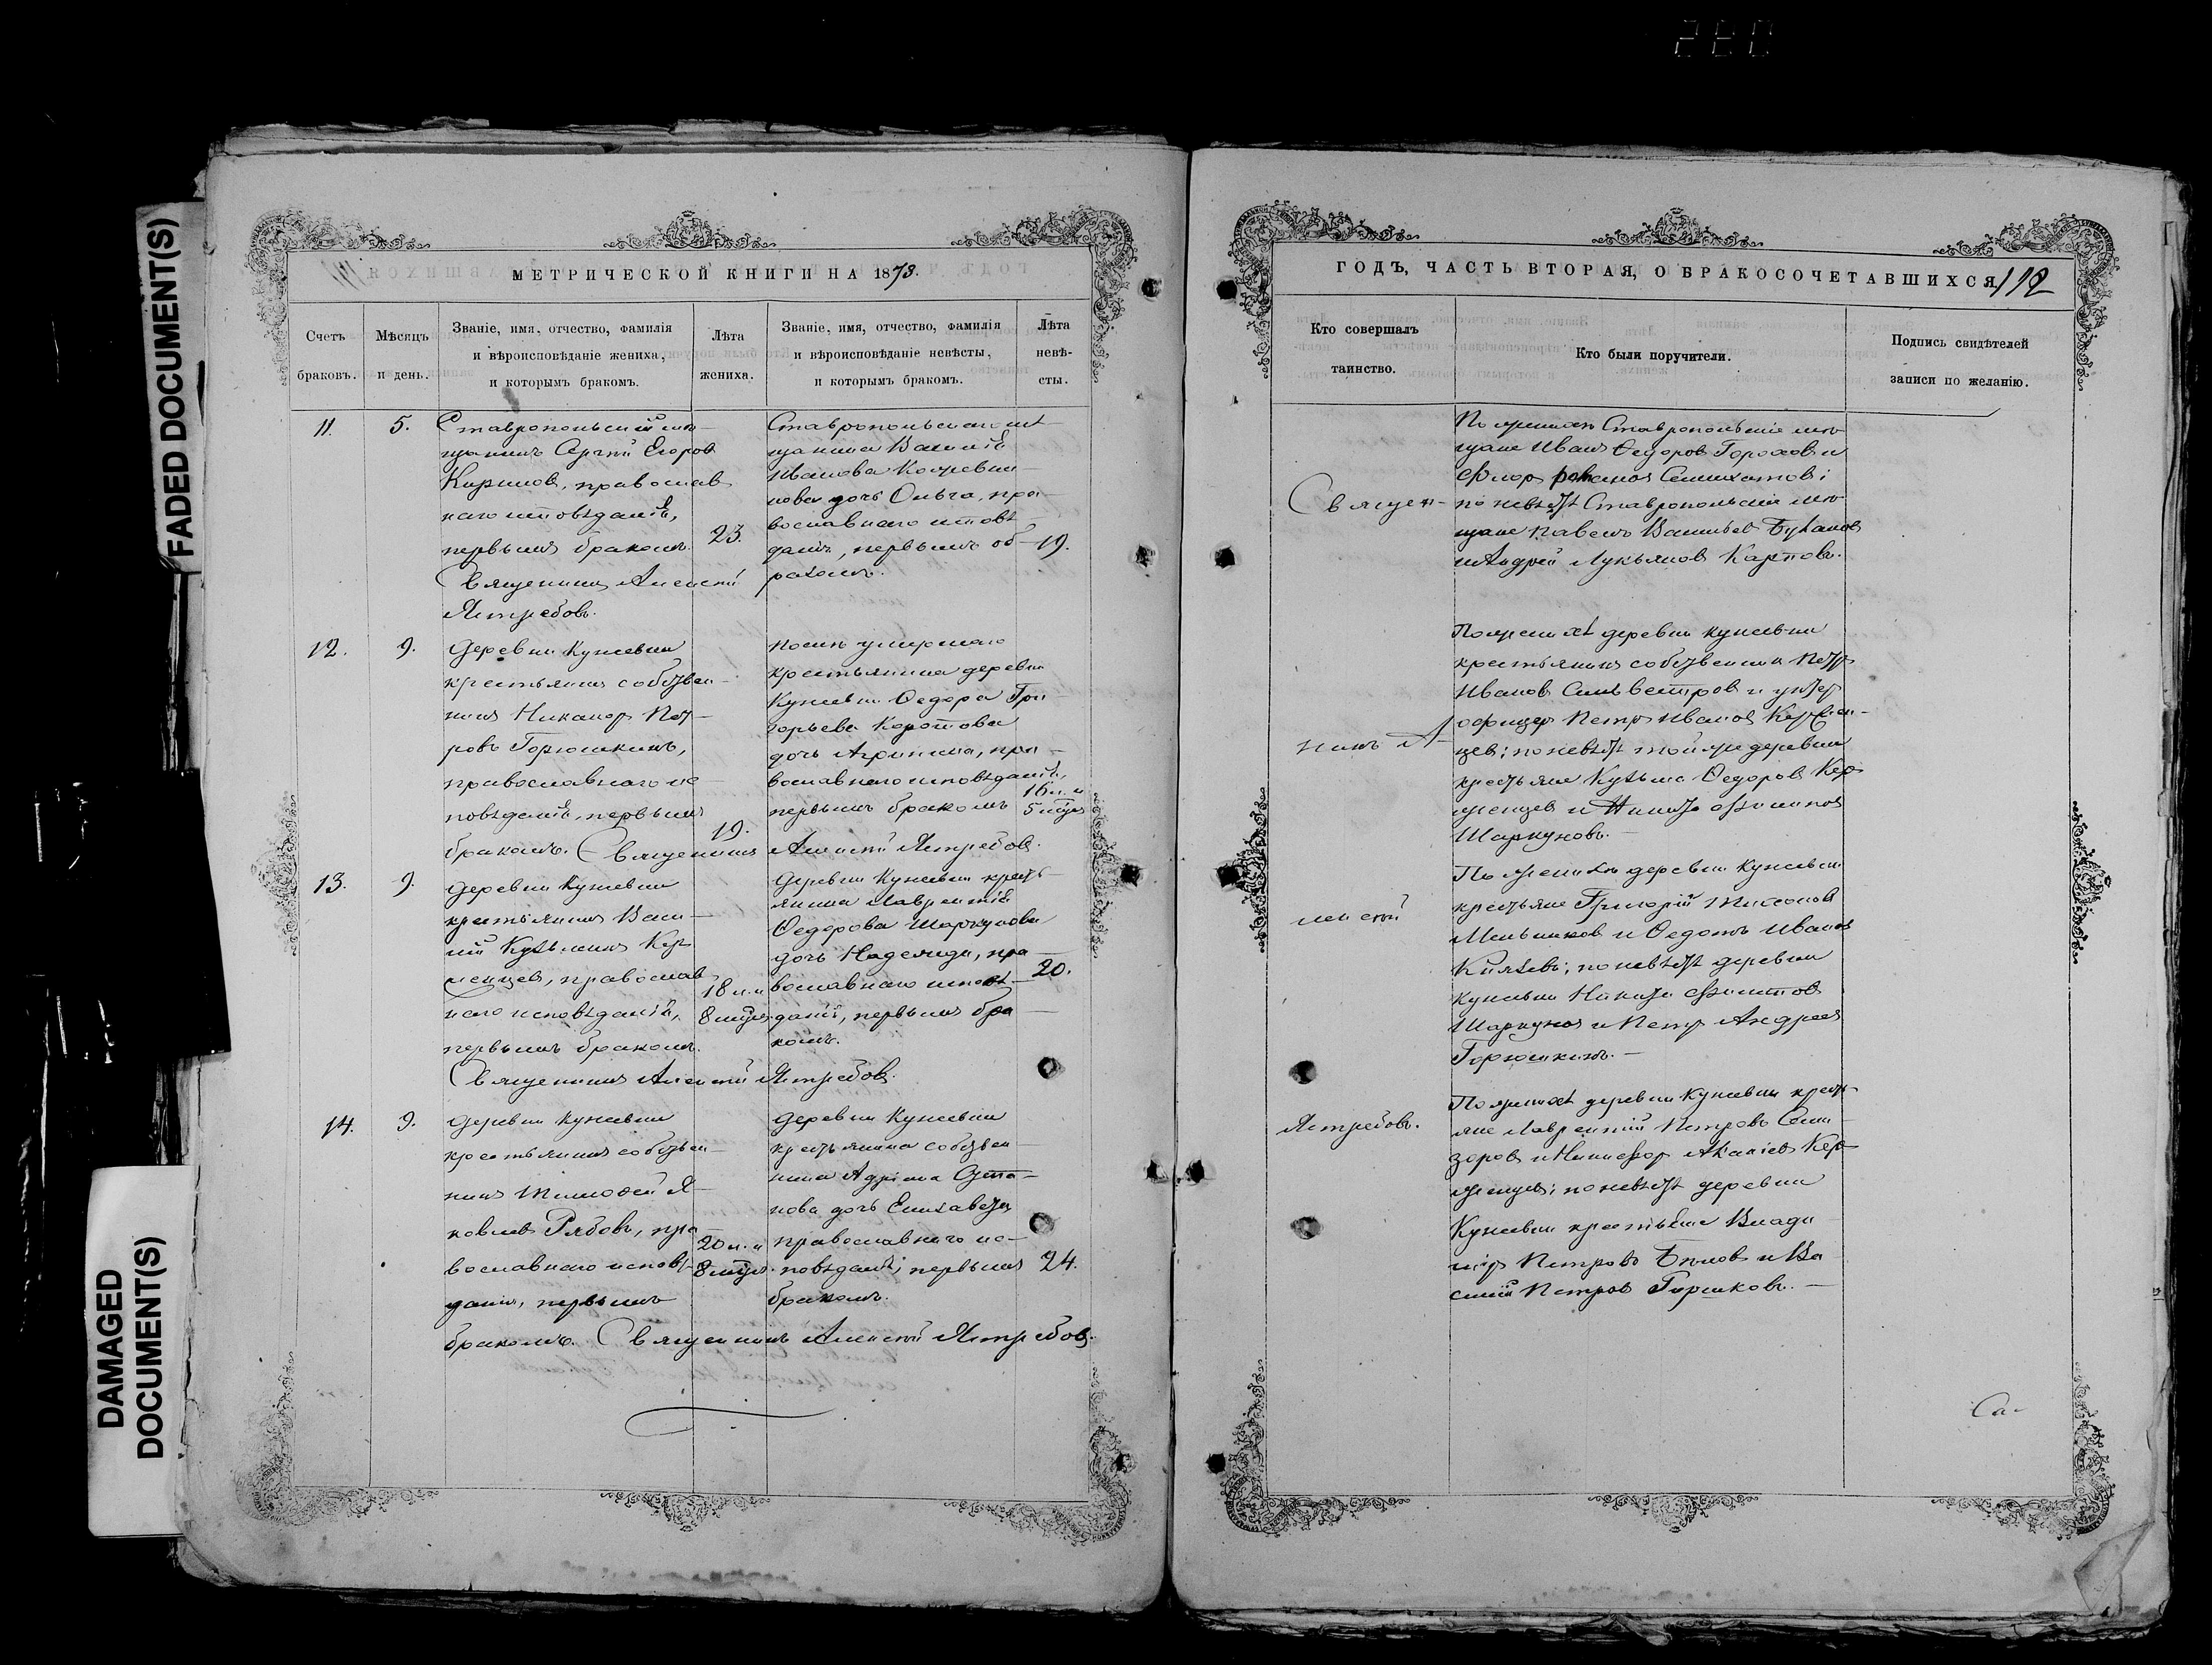 FADED DOCUMENT(S)
DAMAGED
DOCUMENT(S)
МЕТРИЧЕСКОЙ КНИГИ НА 1873.
Счетъ
браковъ.
Мѣсяцъ
и день.
Званіе, имя, отчество, фамилія
и вѣроисповѣданіе жениха,
и которымъ бракомъ.
Лѣта
жениха.
Званіе, имя, отчество, фамилія
и вѣроисповѣданіе невѣсты,
и которымъ бракомъ.
Лѣта
невѣ-
сты.
11.
5.
Ставропольскій мѣ-
щанинъ Сергѣй Егоровъ
православ
наго исповѣданія,
первымъ бракомъ.
23.
Священникъ Алексѣй
Ястребовъ.
Ставропольскаго мѣ-
щанина Василія
Иванова
дочь Ольга, пра-
вославнаго исповѣ-
данія, первымъ
19.
12.
9.
Деревни Кунеевки
крестьянинъ собствен-
никъ Никаноръ Пет-
ровъ Горюшкинъ,
православнаго ис-
повѣданія, первымъ
бракомъ. Священникъ Алексѣй Ястребовъ.
19.
умершаго
крестьянина деревни
Кунеевки Ѳедора Гри-
горьева
дочь пра-
вославнаго исповѣданія,
первымъ бракомъ
16 л. и
5 мѣс.
13.
9.
Деревни Кунеевки
крестьянинъ Васи-
лій Кузьминъ Кер-
женцевъ, православ
наго исповѣданія,
первымъ бракомъ.
18 л. и
8 мѣс.
Священникъ Алексѣй Ястребовъ.
Деревни Кунеевки кресть-
янина Лаврентія
Ѳедорова Шаркунова
дочь Надежда, пра-
вославнаго исповѣ-
данія, первымъ бра-
комъ.
20.
14.
9.
Деревни Кунеевки
крестьянинъ собствен-
никъ Тимоѳей Я-
ковлевъ Рябовъ, пра-
вославнаго исповѣ-
данія, первымъ
бракомъ. Священникъ Алексѣй Ястребовъ.
20 л. и
8 мѣс.
Деревни Кунеевки
крестьянина собствен-
ника
дочь Елизавета
православнаго ис-
повѣданія, первымъ
бракомъ.
24.
ГОДЪ, ЧАСТЬ ВТОРАЯ, О БРАКОСОЧЕТАВШИХСЯ 112
Кто совершалъ
таинство.
Кто были поручители.
Подпись свидѣтелей
записи по желанію.
Священ-
никъ А-
лексѣй
Ястребовъ.
По женихѣ Ставропольскіе мѣ-
щане Иванъ Ѳедоровъ Гороховъ и
по невѣстѣ Ставропольскіе мѣ-
щане Павелъ Васильевъ Булановъ
и Андрей Лукьяновъ Карповъ.
По женихѣ деревни Кунеевки
крестьянинъ собственникъ Петръ
Ивановъ Сильвестровъ и унтеръ
офицеръ Петръ Ивановъ Кержен-
цевъ; по невѣстѣ той же деревни
крестьяне Кузьма Ѳедоровъ Кер-
женцевъ и Никита Филиповъ
Шаркуновъ.
По женихѣ деревни Кунеевки
крестьяне Григорій Тихоновъ
Мельниковъ и Ѳедотъ Ивановъ
Князевъ; по невѣстѣ деревни
Кунеевки Никита Филиповъ
Шаркуновъ и Петръ Андреевъ
Горюшкинъ.
По женихѣ деревни Кунеевки кресть-
яне Лаврентій Петровъ
и Никифоръ Кер-
женцевъ; по невѣстѣ деревни
Кунеевки крестьяне Влади-
міръ Петровъ Бѣловъ и Ва-
силій Петровъ Горшковъ.